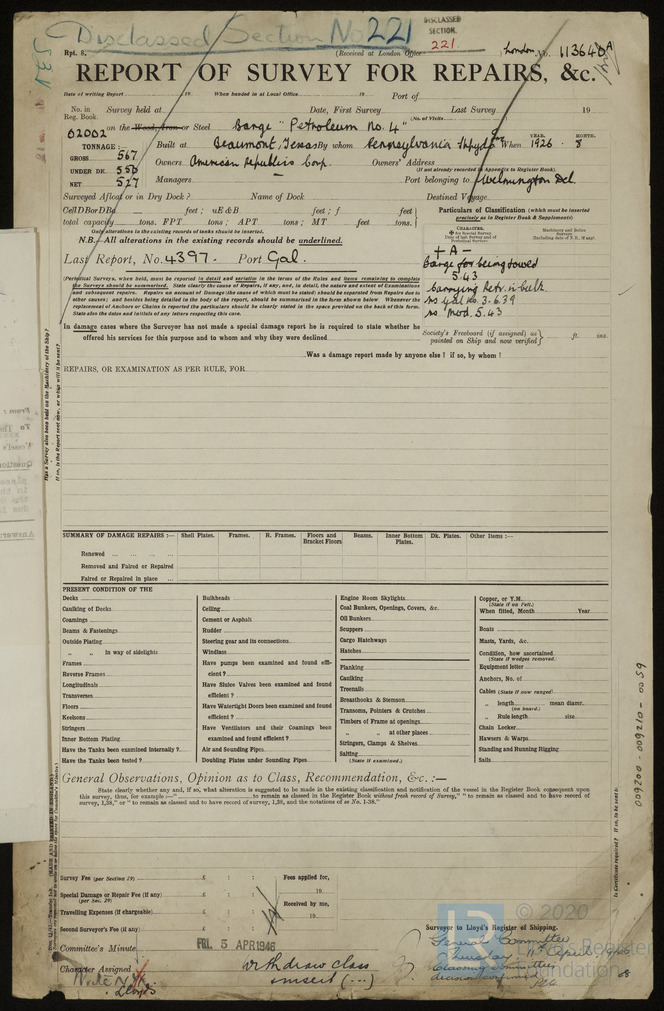 Disclassed Section No 221
DISCLASSED
SECTION.
221.
Rpt. 8.
(Received at London Office
London No. 113640A
REPORT OF SURVEY FOR REPAIRS, &c.
Date of writing Report 19 When handed in at Local Office 19 Port of
No. in Reg. Book. Survey held at Date, First Survey Last Survey 19
(No. of Visits
62002 on the Wood, Iron or Steel Barge "Petroleum No. 4"
TONNAGE:—
GROSS 567
UNDER DK. 550
NET 527
Built at Beaumont, Texas By whom Pennsylvania When YEAR. 1926 MONTH. 8
Owners American Republics Corp. Owners' Address
(If not already recorded in Appendix to Register Book)
Managers Port belonging to Wilmington Del.
Surveyed Afloat or in Dry Dock? Name of Dock Destined Voyage
Cell DB or DBa feet; uE&B feet; f feet
total capacity tons. FPT tons; APT tons; MT feet tons.
Only alterations in the existing records of tanks should be inserted.
N.B.—All alterations in the existing records should be underlined.
Last Report, No. 4397. Port Gal.
Particulars of Classification (which must be inserted
precisely as in Register Book & Supplements)
CHARACTER.
+ A -
Barge for being towed
5.43
Carrying Petr. in bulk
ss Gal No. 3-6.39
ss Mod. 5.43
(Periodical Surveys, when held, must be reported in detail and seriatim in the terms of the Rules and items remaining to complete
the Surveys should be summarised. State clearly the cause of Repairs, if any, and, in detail, the nature and extent of Examinations
and subsequent repairs. Repairs on account of Damage (the cause of which must be stated) should be separated from Repairs due to
other causes; and besides being detailed in the body of the report, should be summarised in the form shown below. Whenever the
replacement of Anchors or Chains is reported the particulars should be clearly stated in the space provided on the back of this form.
State also the dates and initials of any letters respecting this case.
In damage cases where the Surveyor has not made a special damage report he is required to state whether he
offered his services for this purpose and to whom and why they were declined
Society's Freeboard (if assigned) as
painted on Ship and now verified ft. ins.
Was a damage report made by anyone else? if so, by whom?
REPAIRS, OR EXAMINATION AS PER RULE, FOR
SUMMARY OF DAMAGE REPAIRS:— Shell Plates. Frames. R. Frames. Floors and Bracket Floors Beams. Inner Bottom Plates. Dk. Plates. Other Items:—
Renewed
Removed and Faired or Repaired
Faired or Repaired in place
PRESENT CONDITION OF THE
Decks
Caulking of Decks
Coamings
Beams & Fastenings
Outside Plating
" " in way of sidelights
Frames
Reverse Frames
Longitudinals
Transverses
Floors
Keelsons
Stringers
Inner Bottom Plating
Have the Tanks been examined internally?
Have the Tanks been tested?
Bulkheads
Ceiling
Cement or Asphalt
Rudder
Steering gear and its connections
Windlass
Have pumps been examined and found efficient?
Have Sluice Valves been examined and found efficient?
Have Watertight Doors been examined and found efficient?
Have Ventilators and their Coamings been examined and found efficient?
Air and Sounding Pipes
Doubling Plates under Sounding Pipes
Engine Room Skylights
Coal Bunkers, Openings, Covers, &c.
Oil Bunkers
Scuppers
Cargo Hatchways
Hatches
Planking
Caulking
Treenails
Breasthooks & Stemson
Transoms, Pointers & Crutches
Timbers of Frame at openings
" " at other places
Stringers, Clamps & Shelves
Salting
(State if examined.)
Copper, or Y.M.
(State if on Felt.)
When fitted, Month Year
Boats
Masts, Yards, &c.
Condition, how ascertained
(State if wedges removed.)
Equipment letter
Anchors, No. of
Cables (State if now ranged)
" length mean diamr.
(on board.)
" Rule length size
Chain Locker
Hawsers & Warps
Standing and Running Rigging
Sails
General Observations, Opinion as to Class, Recommendation, &c. :—
State clearly whether any and, if so, what alteration is suggested to be made in the existing classification and notification of the vessel in the Register Book consequent upon
this survey, thus, for example:—" to remain as classed in the Register Book without fresh record of Survey," "to remain as classed and to have record of
survey, 1,38," or "to remain as classed and to have record of survey, 1,38, and the notations of ss No. 1-38."
Survey Fee (per Section 29) £ : : Fees applied for,
19
Special Damage or Repair Fee (if any) £ : :
(per Sec. 29)
Received by me,
Travelling Expenses (if chargeable) £ : : 19
Second Surveyor's Fee (if any) £ : :
Surveyor to Lloyd's Register of Shipping.
Committee's Minute FRI. 5 APR 1946
Character Assigned Withdraw class
General Committee
Thursday 11th April 1946
Classing Committee
decision confirmed
009200-009210-0059
© 2020
Lloyd's Register
Foundation